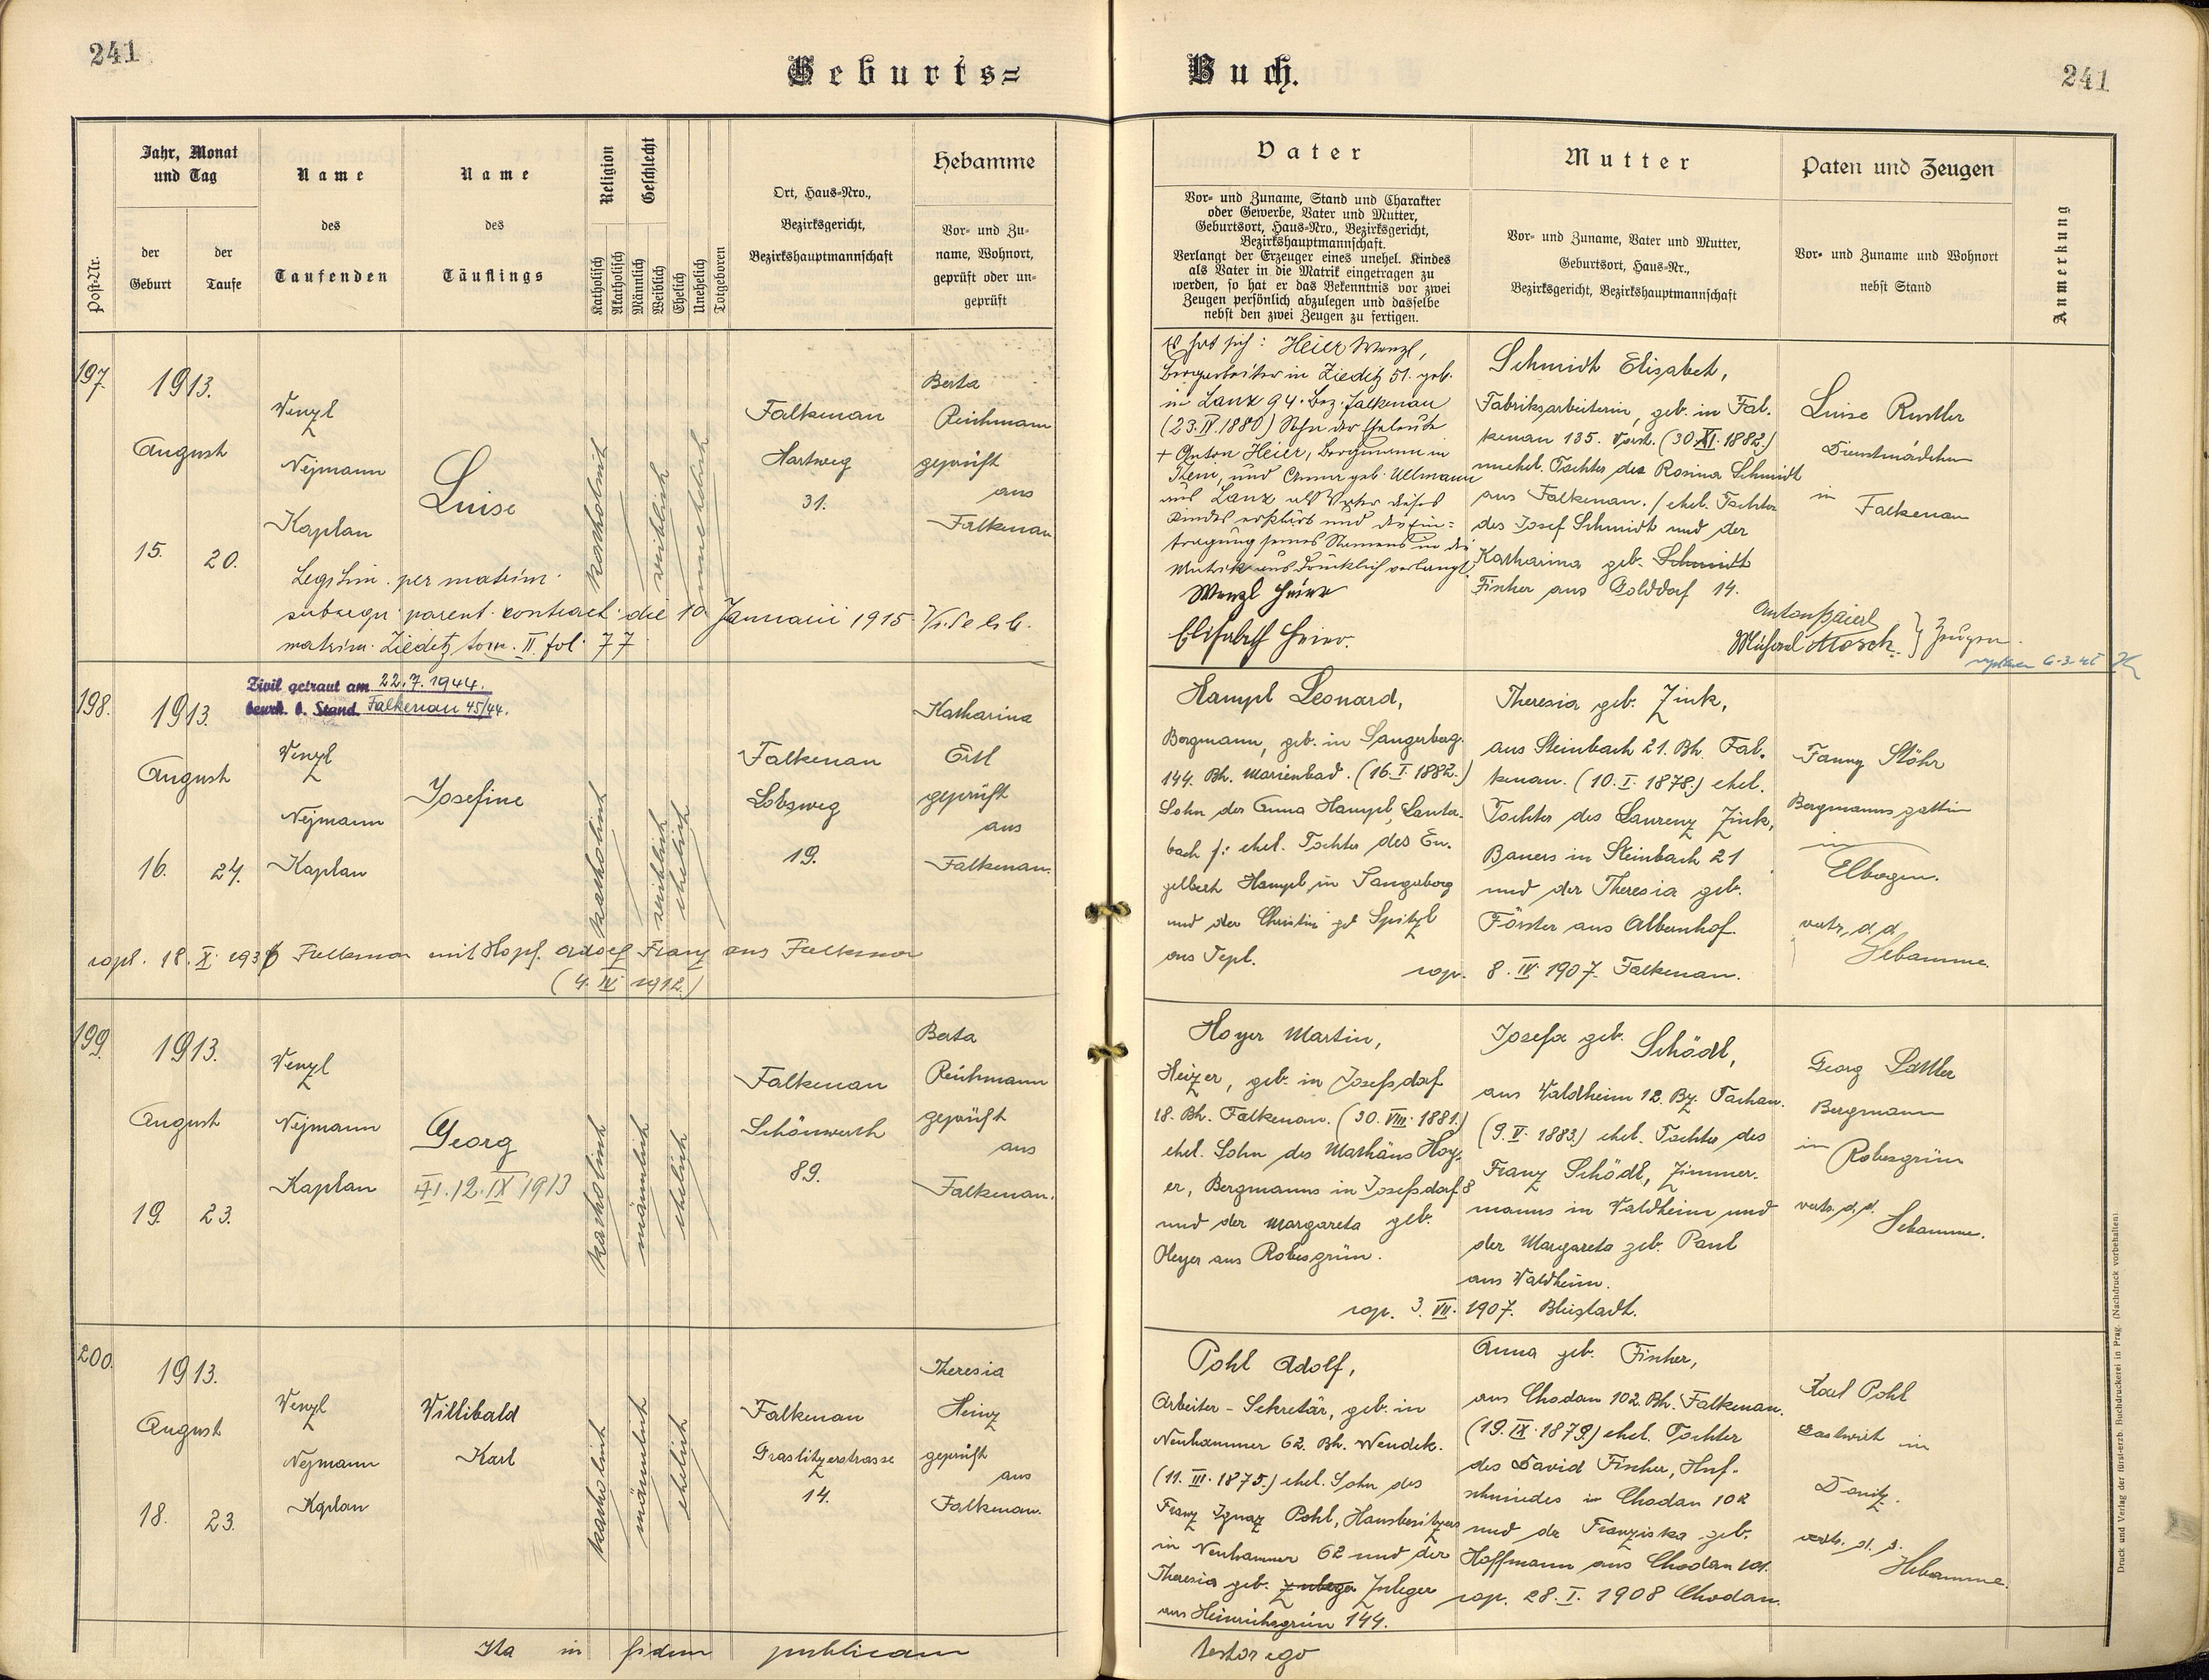 241
Geburts=
Jahr, Monat
und Tag
Name
Name
Religion
Geschlecht
Hebamme
Ort, Haus=Nro.,
Bezirksgericht,
Bezirkshauptmannschaft
des
des
der
Geburt
der
Taufe
Taufenden
Täuflings
Post=Nr.
Katholisch
Akatholisch
Männlich
Weiblich
Ehelich
Unehelich
Totgeboren
Vor= und Zu=
name, Wohnort,
geprüft oder un=
geprüft
197.
1913.
August
15. 20.
Wenzl
Nejmann
Kaplan
Luise
katholisch
weiblich
unehelich
Falkenau
Hartweg
31.
Berta
Reichmann
geprüft
aus
Falkenau
Legitim. per matrim.
subsequ. parent. contract. die 10. Januarii 1915
matrim. Zieditz tom. II. fol. 77
198.
Zivil getraut am 22.7.1944.
beurk. b. Stand. Falkenau 45/44.
1913.
August
16. 24.
Wenzl
Nejmann
Kaplan
Josefine
katholisch
weiblich
ehelich
Falkenau
Lobsweg
19.
Katharina
Ertl
geprüft
aus
Falkenau.
copul. 18. X. 1936 Falkenau mit Hopf Adolf Franz aus Falkenau
(4. IV. 1912.)
199.
1913.
August
19. 23.
Wenzl
Nejmann
Kaplan
Georg
12. IX 1913
katholisch
männlich
ehelich
Falkenau
Schönwerth
89.
Berta
Reichmann
geprüft
aus
Falkenau.
200.
1913.
August
18. 23.
Wenzl
Nejmann
Kaplan
Willibald
Karl
katholisch
männlich
ehelich
Falkenau
Graslitzerstrasse
14.
Theresia
Heinz
geprüft
aus
Falkenau.
Ita in fidem publicam
Buch.
241
Vater
Vor= und Zuname, Stand und Charakter
oder Gewerbe, Vater und Mutter,
Geburtsort, Haus=Nro., Bezirksgericht,
Bezirkshauptmannschaft.
Verlangt der Erzeuger eines unehel. Kindes
als Vater in die Matrik eingetragen zu
werden, so hat er das Bekenntnis vor zwei
Zeugen persönlich abzulegen und dasselbe
nebst den zwei Zeugen zu fertigen.
Mutter
Vor= und Zuname, Vater und Mutter,
Geburtsort, Haus=Nr.,
Bezirksgericht, Bezirkshauptmannschaft
Paten und Zeugen
Vor= und Zuname und Wohnort
nebst Stand
Anmerkung
Es hat sich: Heier Wenzl,
Bergarbeiter in Zieditz 51. geb.
in Lanz 94. Bez. Falkenau
(23. IV. 1880) Sohn der Eheleute
+ Anton Heier, Bergmann in
Thein, und Anna geb. Ullmann
aus Lanz als Vater dieses
Kindes erklärt und die Ein=
tragung seines Namens in die
Matrik ausdrücklich verlangt.
Wenzl Heier
Elisabeth Heier.
Schmidt Elisabet,
Fabriksarbeiterin, geb. in Fal.
kenau 135. (30. XI. 1882.)
unehel. Tochter der Rosina Schmidt
aus Falkenau. / ehel. Tochter
des Josef Schmidt und der
Katharina geb. Schmidt
Fischer aus Golddorf 14.
Luise Rustler
Dienstmädchen
in
Falkenau
Anton Baierl
Michael Mosch. } Zeugen.
Hampl Leonard,
Bergmann, geb. in Sangerberg
144. Bh. Marienbad. (16. I. 1882.)
Sohn der Anna Hampl, Lauter.
bach f: ehel. Tochter des En.
gelbert Hampl in Sangerberg
und der Christine geb Spitzl
aus Tepl.
Theresia geb. Zink,
aus Steinbach 21. Bh. Fal.
kenau. (10. I. 1878.) ehel.
Tochter des Laurenz Zink,
Bauers in Steinbach 21
und der Theresia geb.
Förster aus Albernhof.
cop. 8. IV. 1907. Falkenau.
Fanny Stöhr
Bergmannsgattin
in
Elbogen.
vertr. d. d.
Hebamme.
Hoyer Martin,
Heizer, geb. in Josefsdorf
18. Bh. Falkenau. (30. VIII. 1881.)
ehel. Sohn des Mathäus Hoy.
er, Bergmanns in Josefsdorf 8
und der Margareta geb.
Heyer aus Robesgrün.
Josefa geb. Schödl,
aus Waldheim 12. Bz. Tachau.
(9. V. 1883.) ehel. Tochter des
Franz Schödl, Zimmer.
manns in Waldheim und
der Margareta geb. Paul
aus Waldheim.
cop. 3. VII. 1907. Bleistadt.
Georg Sattler
Bergmann
in
Robesgrün
vertr. d. d.
Hebamme.
Pohl Adolf,
Arbeiter - Sekretär, geb. in
Neuhammer 62. Bh. Neudek.
(11. III. 1875.) ehel. Sohn des
Franz Ignaz Pohl, Hausbesitzers
in Neuhammer 62 und der
Theresia geb. Zuleger Zuleger
aus Heinrichsgrün 144.
Anna geb. Fischer,
aus Chodau 102. Bh. Falkenau.
(19. IX. 1879.) ehel. Tochter
des David Fischer, Huf.
schmiedes in Chodau 102
und der Franziska geb.
Hoffmann aus Chodau 101.
cop. 28. I. 1908 Chodau.
Karl Pohl
Gastwirt in
Donitz.
vertr. d. d.
Hebamme.
testor ego
Druck und Verlag der fürst-erzb. Buchdruckerei in Prag. (Nachdruck vorbehalten).